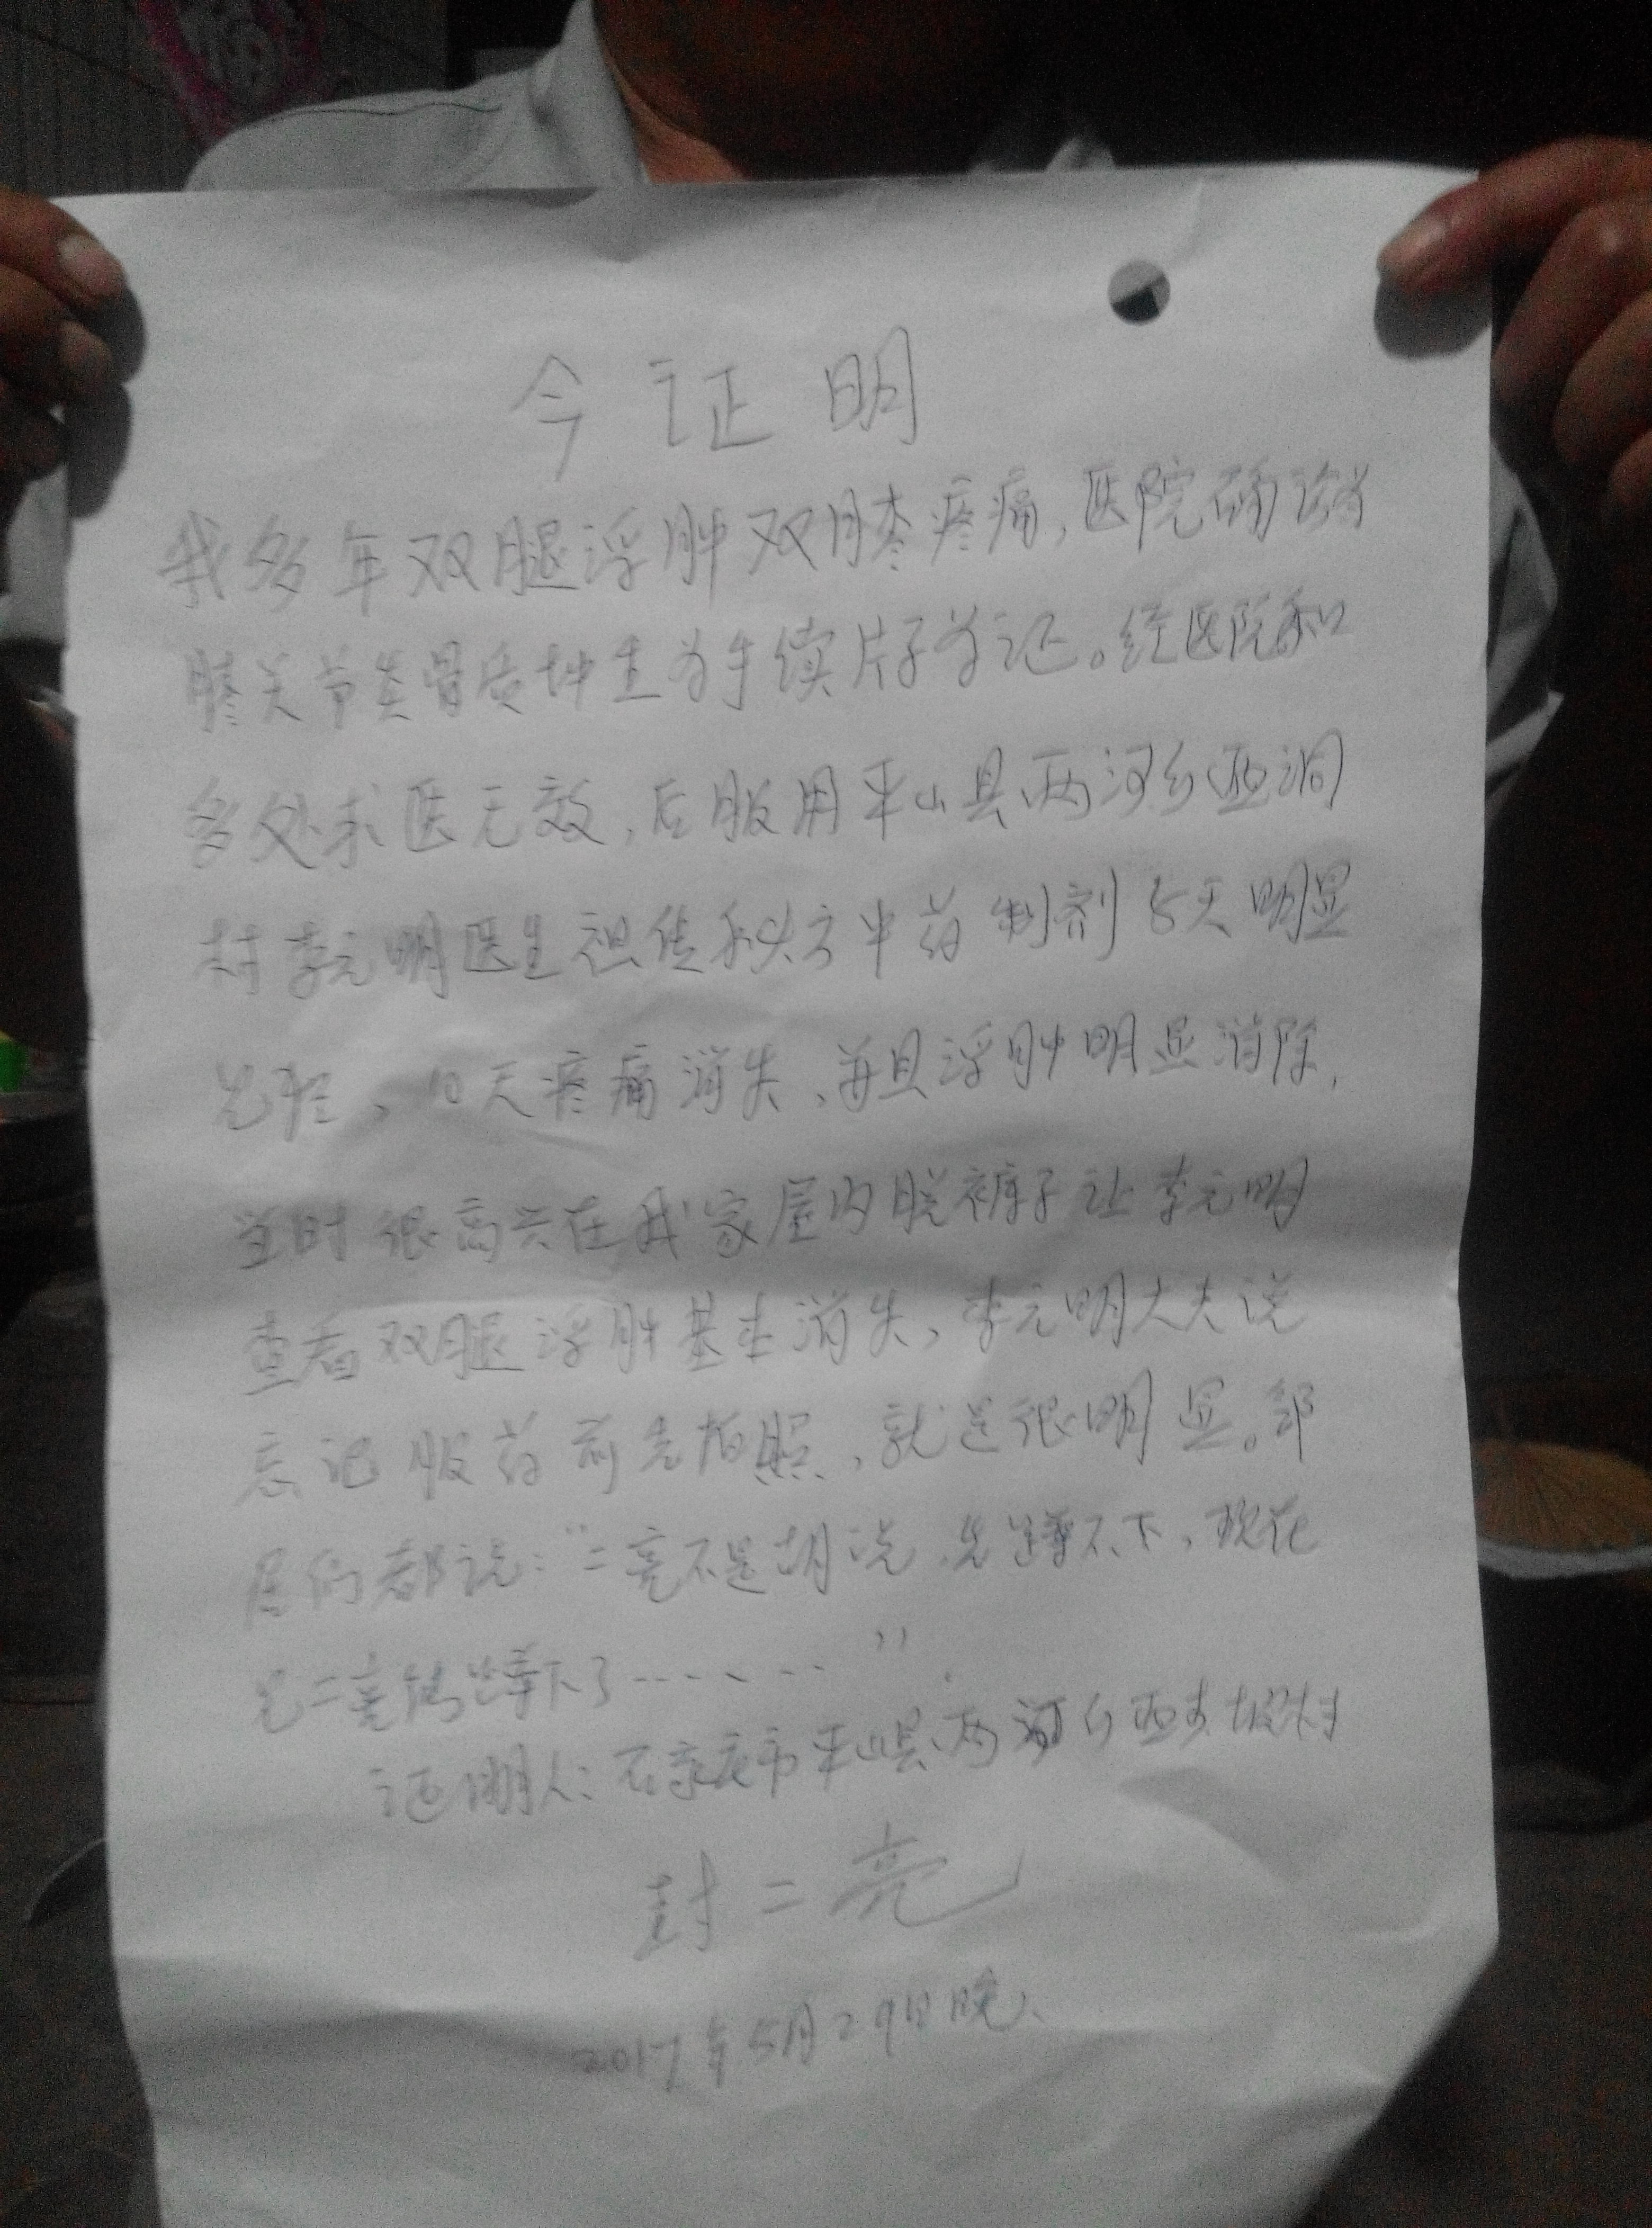 今证明
我多年双腿浮肿双膝疼痛,医院确诊为
膝关节炎骨质增生为手续片子为证。经医院和
多处求医无效,后服用平山县两河乡西洞
村李元明医生祖传秘方中药制剂5天明显
见轻、10天疼痛消失、并且浮肿明显消除,
当时很高兴在我家屋内脱裤子让李元明
查看双腿浮肿基本消失,李元明大夫说
忘记服药前先拍照,就是很明显。邻
居们都说:“二亮不是胡说,先蹲不下,现在
见二亮能蹲下了……”
证明人:石家庄市平山县两河乡西坡村
封二亮
2017年5月29日晚、